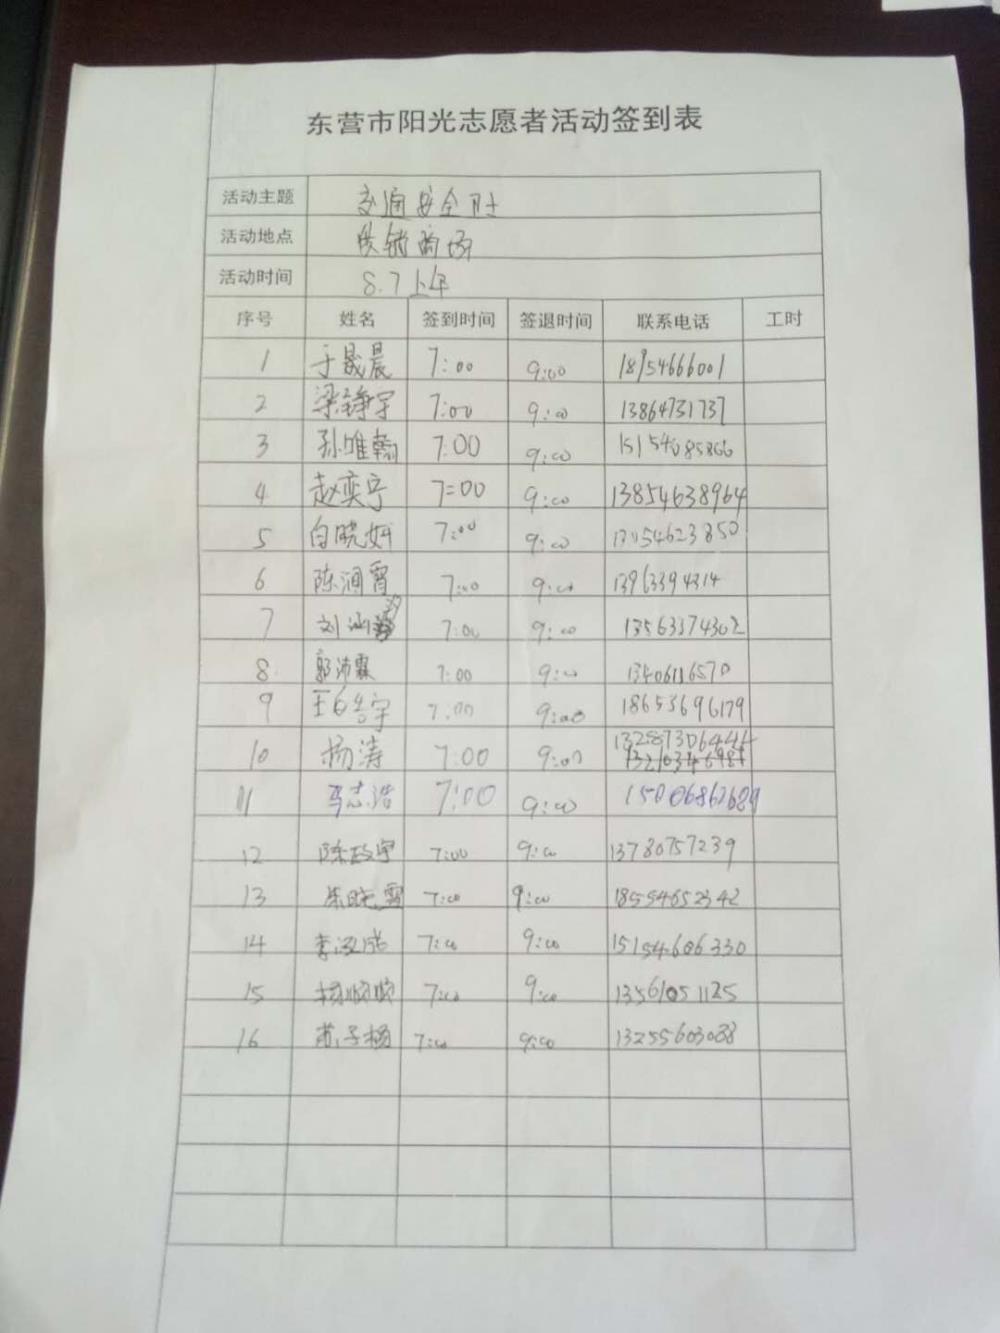 东营市阳光志愿者活动签到表
活动主题 交通安全
活动地点 商场
活动时间 8.7上午
序号 姓名 签到时间 签退时间 联系电话 工时
1 于晟晨 7:00 9:00 18954666001
2 梁铮宇 7:00 9:00 13864731737
3 孙唯翰 7:00 9:00 15154085866
4 赵奕宁 7:00 9:00 13854638964
5 白晓妍 7:00 9:00
6 陈润霄 7:00 9:00 13963394314
7 刘涵 7:00 9:00 13563374302
8 郭沛霖 7:00 9:00 13406116570
9 王皓宇 7:00 9:00 18653696179
10 杨涛 7:00 9:00 13287306444
11 马志浩 7:00 9:00 15006862689
12 陈政宇 7:00 9:00 13780757239
13 7:00 9:00 18554652342
14 7:00 9:00 15154606330
15 杨顺顺 7:00 9:00 13561051125
16 苏子杨 7:00 9:00 13255603088